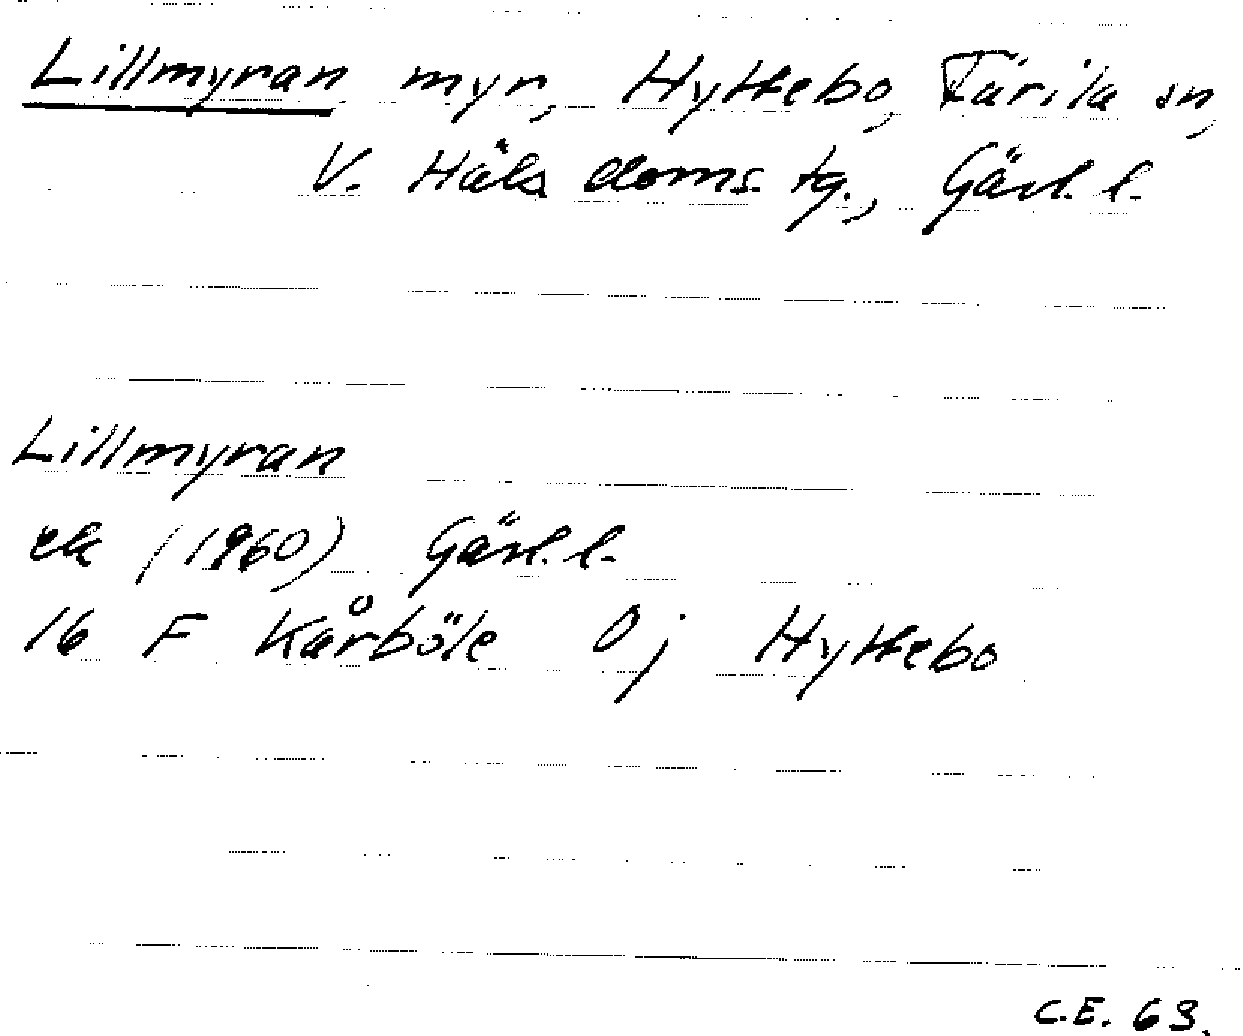 Lillmyran myr, Hyttebo, Färila sn,
V. Häls doms. tg., Gävl. l.
Lillmyran
ek (1960) Gävl. l.
16 F Kårböle 0 j Hyttebo
C.E. 63.